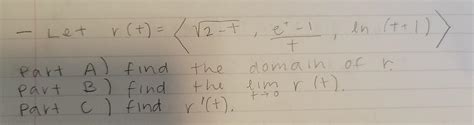 - Let r(t) = ⟨ √(2-t) , (e^t - 1)/t , ln (t+1) ⟩
part A) find the domain of r.
part B) find the lim t→0 r(t).
part C) find r'(t).